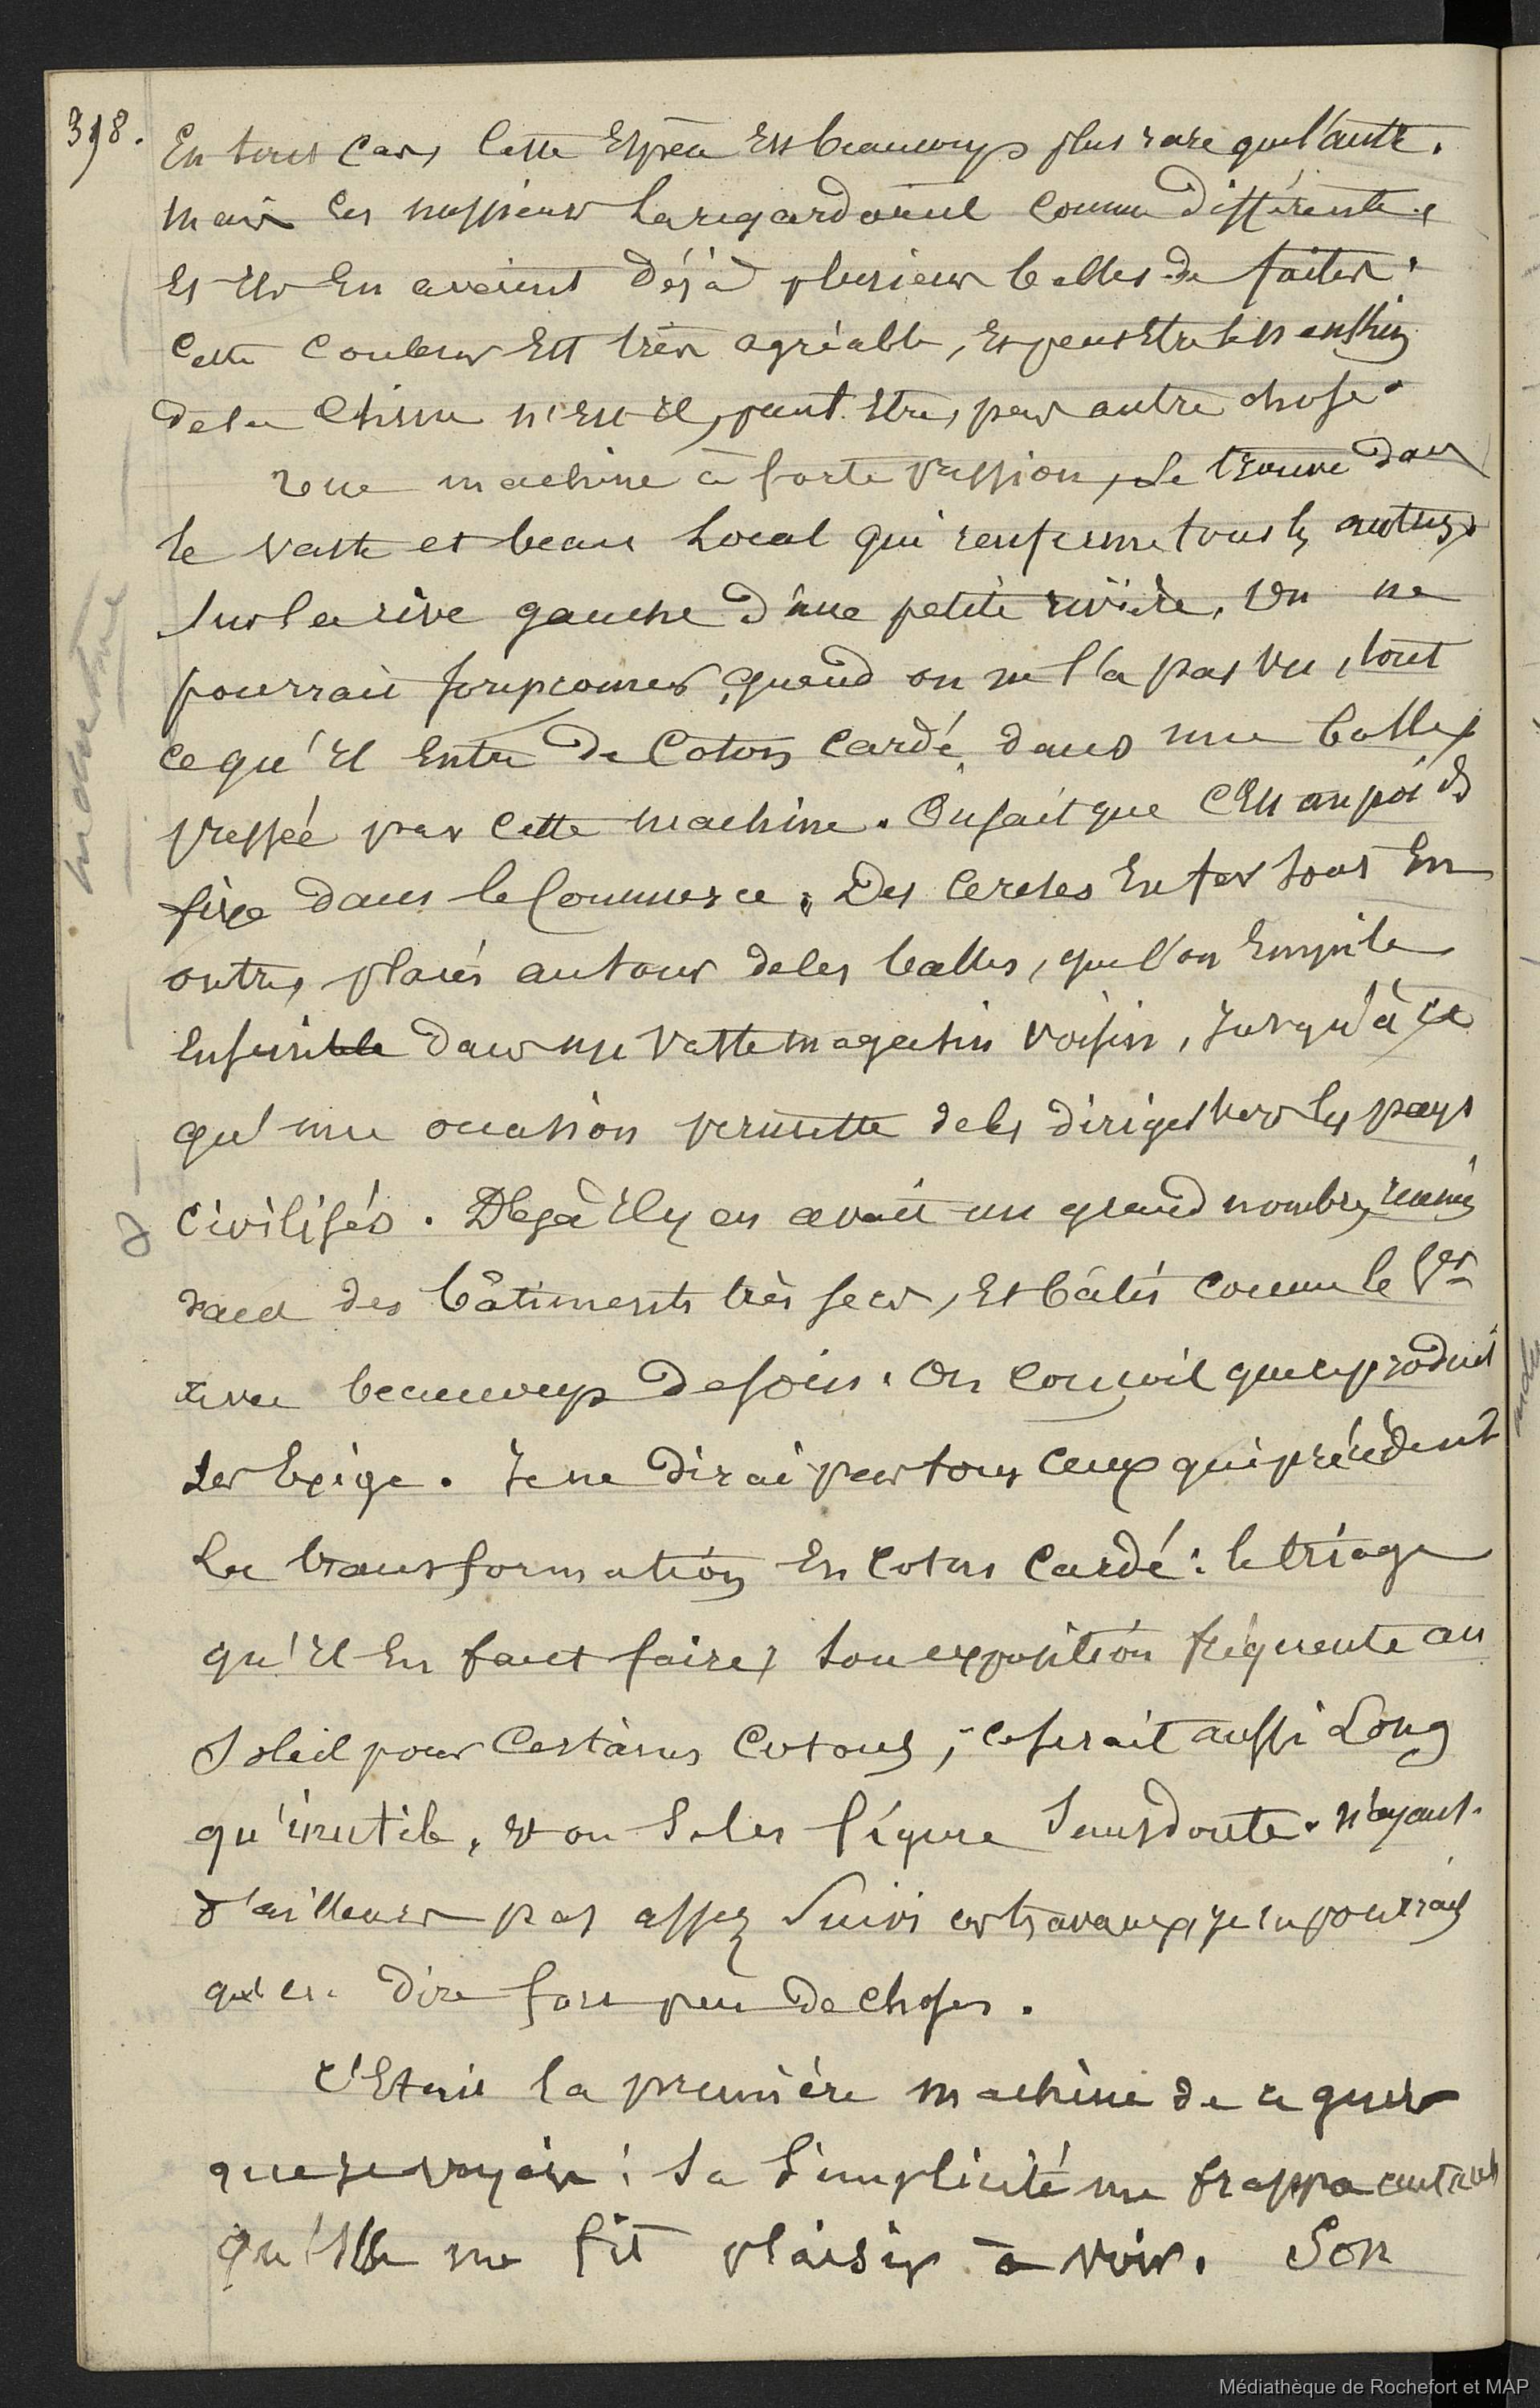 398.
En tous cas, cette Espèce Est beaucoup plus rare que l'autre.
mais ces messieurs la regardaient comme Différente,
Et Ils En avaient Déjà plusieurs balles de faites.
Cette Couleur Est très agréable, Et peut Etre le nankin
de la Chine n'Est-Il, peut être, pas autre chose.
une machine à forte pression, se trouve dans
le vaste et beau Local qui renferme tous les autres,
sur la rive gauche d'une petite rivière. On ne
pourrait soupçonner, quand on ne l'a pas vu, tout
ce qu'Il Entre De Coton Cardé dans une balle,
pressée par cette machine. On sait que C'Est un poids
fixe dans le Commerce. Des Cercles En fer sont En
outre, placés autour de ces balles, que l'on Empile
Ensuite dans un vaste magasin voisin, Jusqu'à ce
qu'une occasion permette de les diriger vers les pays
Civilisés. Déjà Il y en avait un grand nombre, réunis
dans des bâtiments très secs, Et bâtis comme le 1er
avec beaucoup De soin. On conçoit que ce produit
les Exige. Je ne Dirai pas tous ceux qui précèdent
La transformation En Coton Cardé: le triage
qu'Il En faut faire, son exposition fréquente au
Soleil pour Certains Cotons; ce serait aussi Long
qu'inutile, Et on se les figure Sans doute. N'ayant
d'ailleurs pas assez Suivi ces travaux, je n'en pourrais
qu'en Dire fort peu De choses.
C'Etait la première machine de ce genre
que je voyais; sa Simplicité me frappa autant
qu'Elle me fit plaisir à voir. Son
madrétine
Médiathèque de Rochefort et MAP